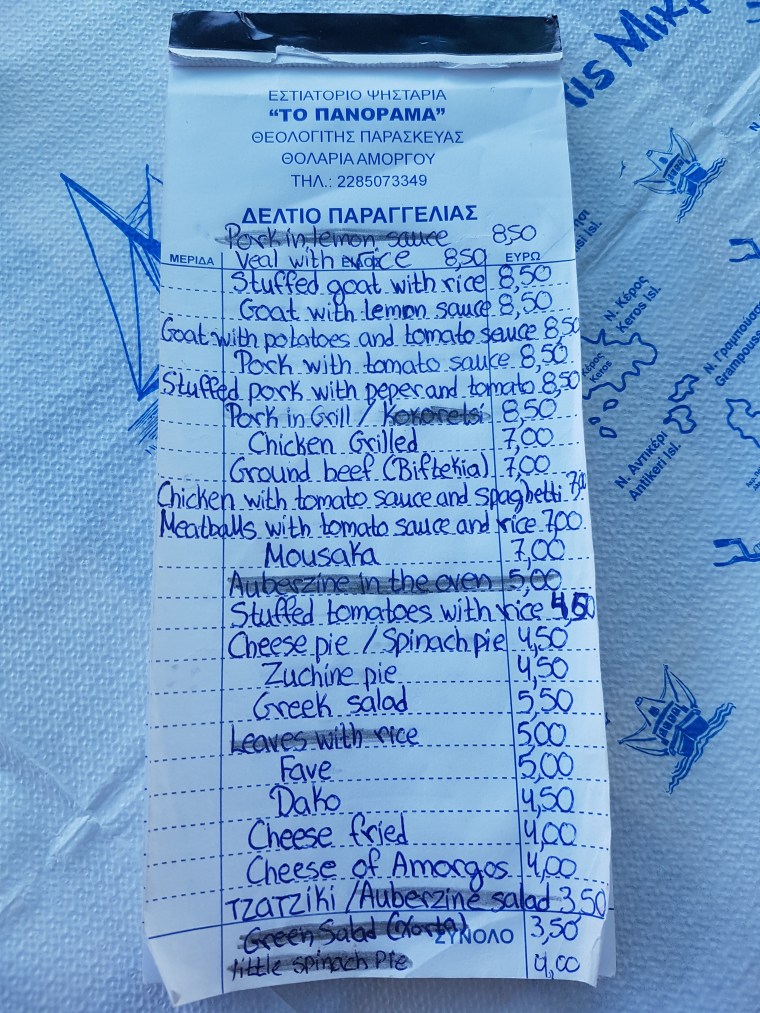 ΕΣΤΙΑΤΟΡΙΟ ΨΗΣΤΑΡΙΑ
"ΤΟ ΠΑΝΟΡΑΜΑ"
ΘΕΟΛΟΓΙΤΗΣ ΠΑΡΑΣΚΕΥΑΣ
ΘΟΛΑΡΙΑ ΑΜΟΡΓΟΥ
ΤΗΛ.: 2285073349
ΔΕΛΤΙΟ ΠΑΡΑΓΓΕΛΙΑΣ
Pork in lemon sauce 8,50
ΜΕΡΙΔΑ Veal with rice 8,50 ΕΥΡΩ
Stuffed goat with rice 8,50
Goat with lemon sauce 8,50
Goat with potatoes and tomato sauce 8,50
Pork with tomato sauce 8,50
Stuffed pork with peper and tomato 8,50
Pork in Grill / Kokorets 8,50
Chicken Grilled 7,00
Ground beef (Biftekia) 7,00
Chicken with tomato sauce and spaghetti
Meatballs with tomato sauce and rice 7,00
Mousaka 7,00
Auberzine in the oven 5,00
Stuffed tomatoes with rice 4,50
Cheese pie / Spinach pie 4,50
Zuchine pie 4,50
Greek salad 5,50
Leaves with rice 5,00
Fave 5,00
Dako 4,50
Cheese fried 4,00
Cheese of Amorgos 4,00
Tzatziki / Auberzine salad 3,50
Green Salad (Xorta) ΣΥΝΟΛΟ 3,50
little spinach Pie 4,00
Ν. Κέρος
Keros Isl.
Κέρος
Keros
Ν. Γραμπούσα
Ν. Αντικέρι
Antikeri Isl.